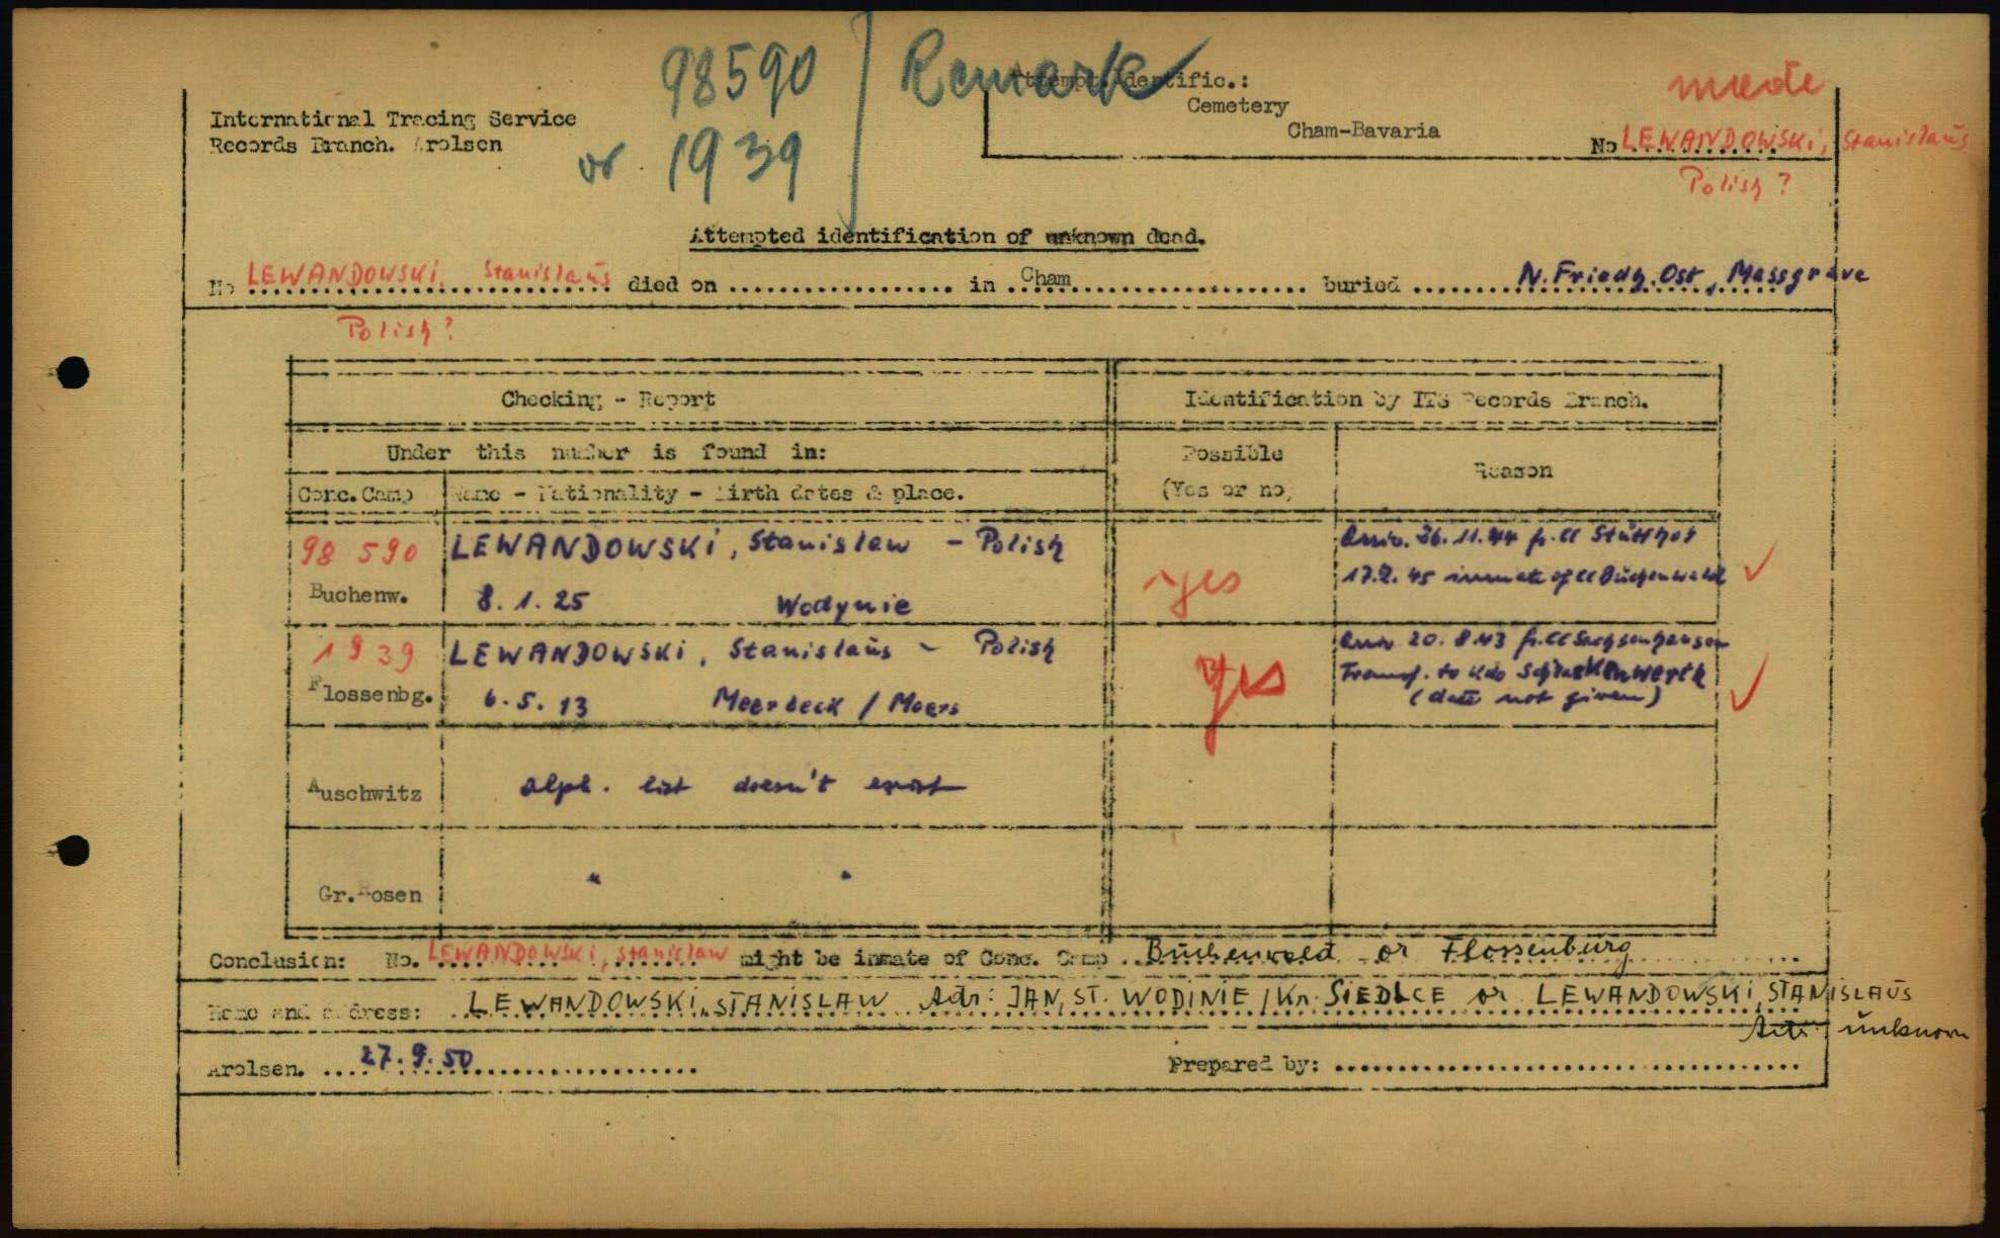 98590 / Remark
or 1939
made
Attempt. identific.:
Cemetery
Cham-Bavaria
International Tracing Service
Records Branch. Arolsen
No LEWANDOWSKI, Stanislaŭs
Polish ?
Attempted identification of unknown dead.
No LEWANDOWSKI, Stanislaŭs died on .................... in ..Cham.................... buried ........ N. Friedh. Ost, Massgrave
Polish ?
Checking - Report
Identification by ITS Records Branch.
Under this number is found in:
Possible
(Yes or no)
Reason
Conc. Camp
Name - Nationality - Birth dates & place.
98 590
Buchenw.
LEWANDOWSKI, Stanislaw - Polish
8.1.25 Wodynie
yes
Arriv. 26.11.44 fr. CC Stŭtthof
17.2.45 inmate of CC Bŭchenwald
1939
Flossenbg.
LEWANDOWSKI, Stanislaŭs - Polish
6.5.13 Meerbeck / Moers
yes
Arriv 20.8.43 fr. CC Sachsenhausen
Transf. to Kdo Schlackenwerth
(date not given)
Auschwitz
alph. list doesn't exist
Gr. Rosen
" "
Conclusion: No. LEWANDOWSKI, Stanislaw might be inmate of Conc. Camp Bŭchenwald or Flossenbŭrg
Name and address: LEWANDOWSKI, STANISLAW Adr: JAN, ST. WODINIE / Kr. SIEDLCE or LEWANDOWSKI, STANISLAŬS
Adr: ŭnknown
Arolsen. ....27.9.50....................
Prepared by: ........................................